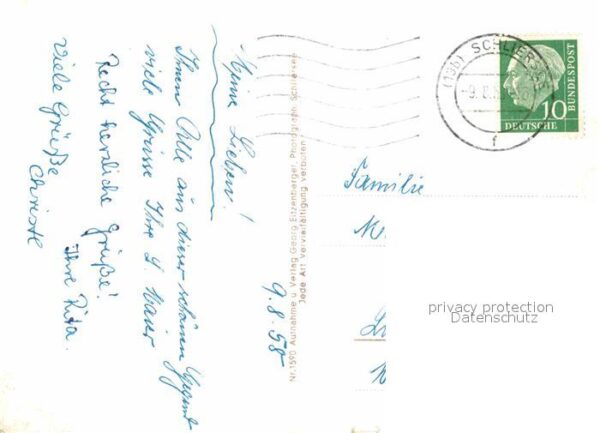 9.8.58
Meine Lieben!
Ihnen Alle aus dieser schönen Gegend
viele Grüsse Ihre L. Maier
Recht herzliche Grüße!
Ihre Rita.
Viele Grüße
Christl
Nr. 1590 Aufnahme u. Verlag Georg Eitzenberger, Photograph, Schliersee
Jede Art Vervielfältigung verboten
(13b) SCHLIERSEE
f
DEUTSCHE
BUNDESPOST
10
Familie
M.
privacy protection
Datenschutz